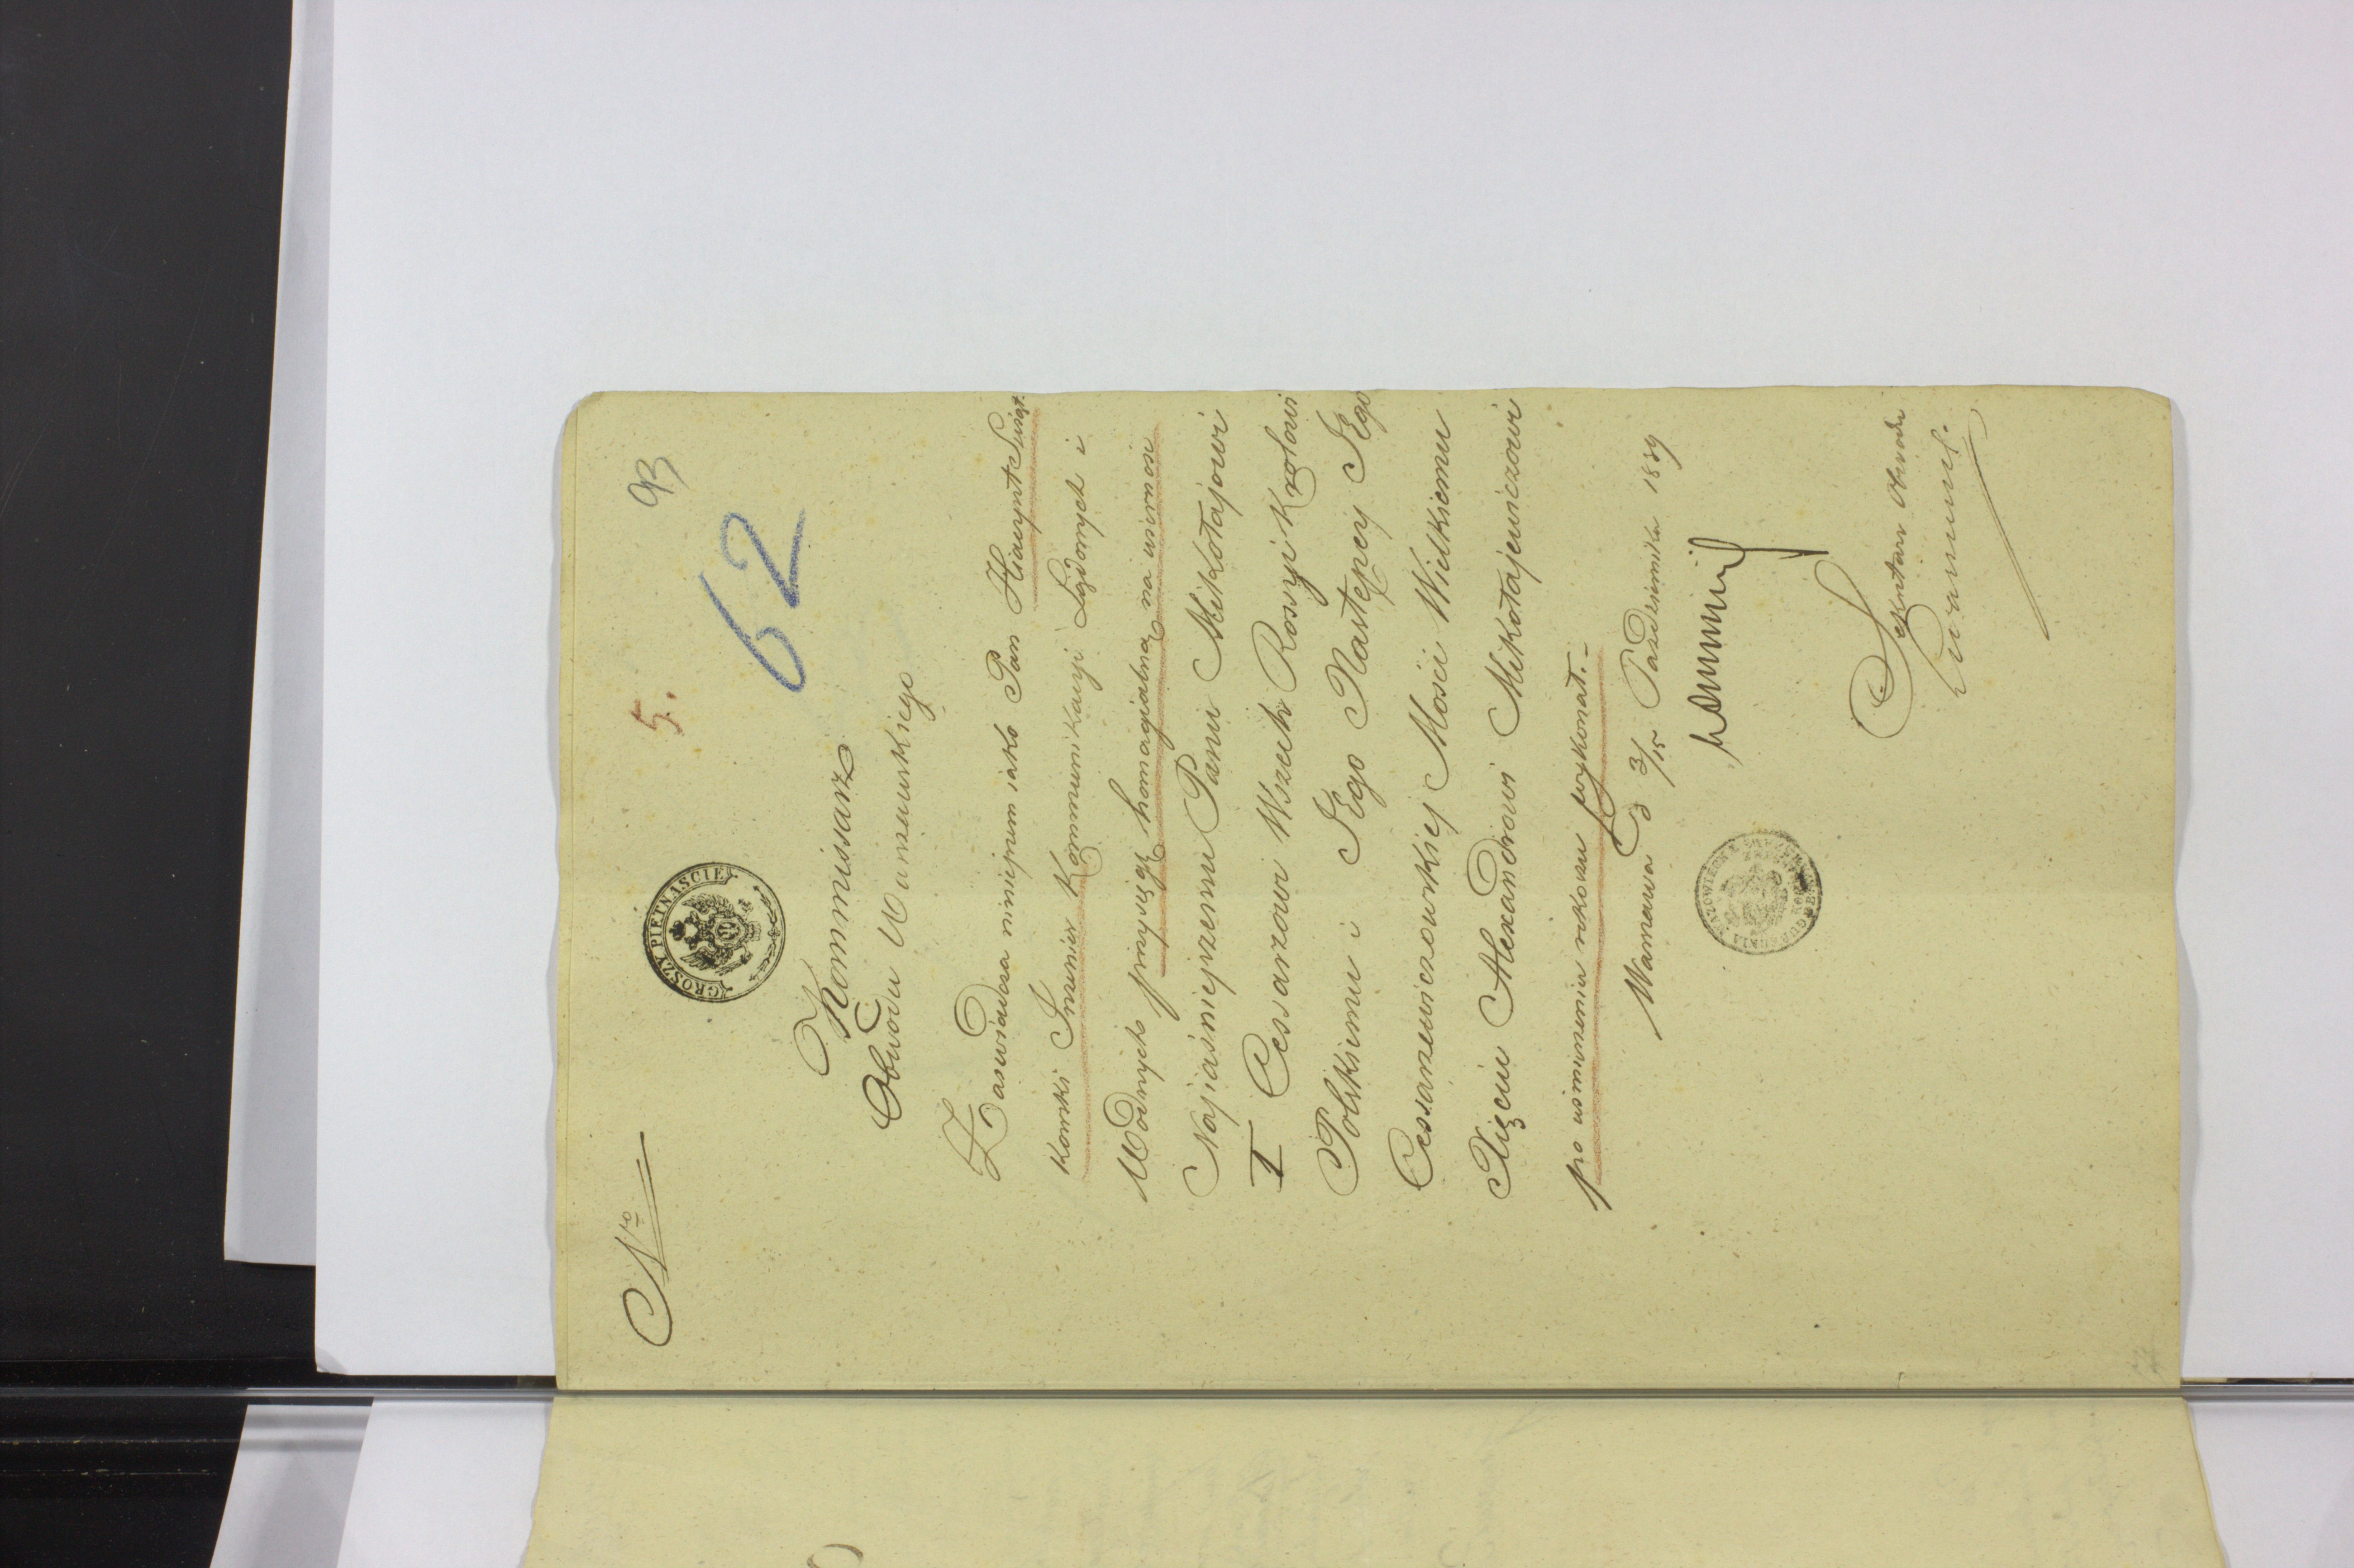 Nro
5.
93
62
GROSZY PIĘTNAŚCIE
Kommissarz
Obwodu Warszawskiego
Zaświadcza niniejszem iako Pan Hiacynt Świąt=
kowski Inzenier Kommunikacyi Lądowych i
Wodnych przysięgę homagialną na wierność
Najiaśniejszemu Panu Mikołajowi
I Cessarzowi Wszech Rossyi Krolowi
Polskiemu i JEgo Następcy JEgo
Cessarzewiczowskiej Mości Wielkiemu
Xięciu Alexandrowi Mikołajewiczowi
po usmierzeniu rokoszu wykonał.-
Warszawa d 3/15 Pazdziernika 1839
Sekretarz Obwodu